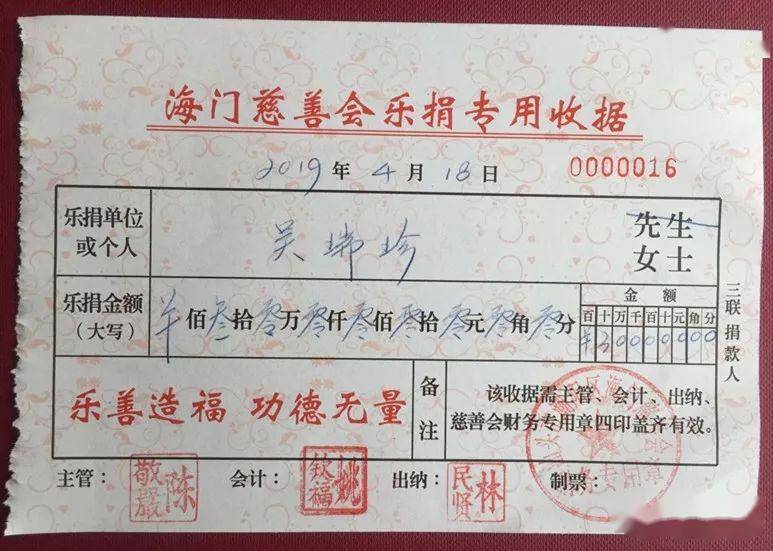 海门慈善会乐捐专用收据
2019年4月18日 0000016
乐捐单位或个人 吴瑞珍 先生女士
乐捐金额(大写) 佰叁拾零万零仟零佰零拾零元零角零分
金额
百十万千百十元角分
¥30000000
三联 捐款人
乐善造福 功德无量
备注
该收据需主管、会计、出纳、
慈善会财务专用章四印盖齐有效。
主管: 陈敬严 会计: 姚钦福 出纳: 林民贤 制票: